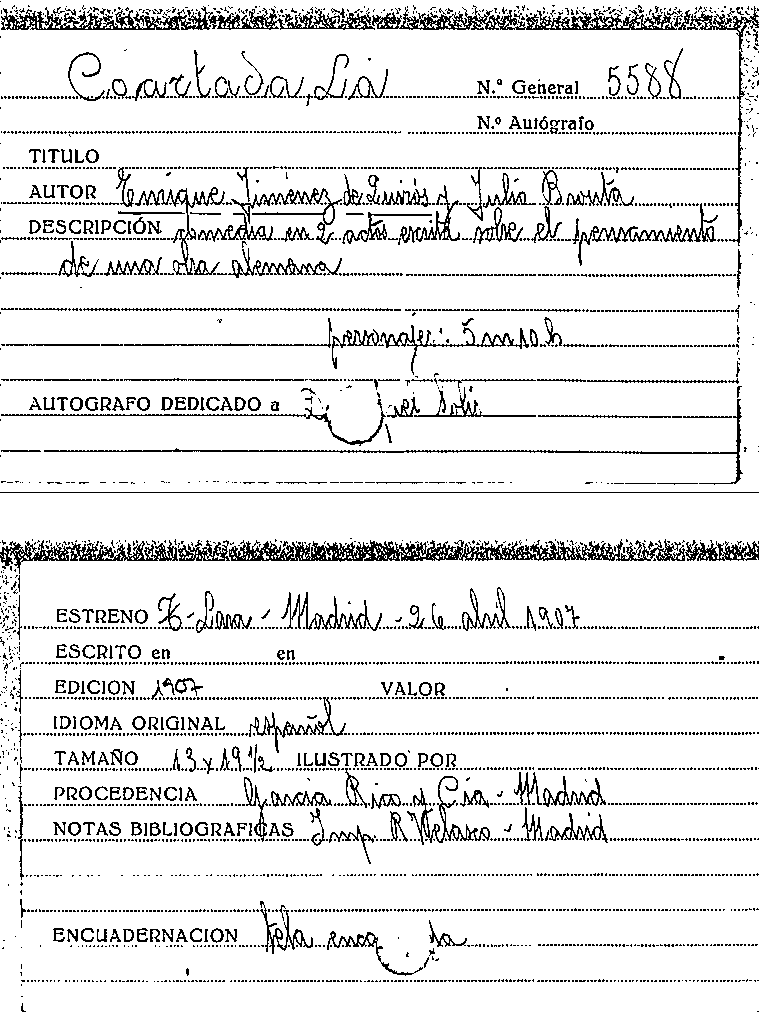 Coartada, La N.º General 5588
N.º Autógrafo
TITULO
AUTOR Enrique Jiménez de Quirós y Julio Broutá
DESCRIPCIÓN comedia en 2 actos escrita sobre el pensamiento
de una obra alemana
personajes: 5 m 10 h
AUTOGRAFO DEDICADO a Solis
ESTRENO T-Lara-Madrid-26 abril 1907
ESCRITO en en
EDICION 1907 VALOR
IDIOMA ORIGINAL español
TAMAÑO 13 x 19 1/2 ILUSTRADO POR
PROCEDENCIA García Rico y Cía-Madrid
NOTAS BIBLIOGRAFICAS Imp R Velasco-Madrid
ENCUADERNACION tela